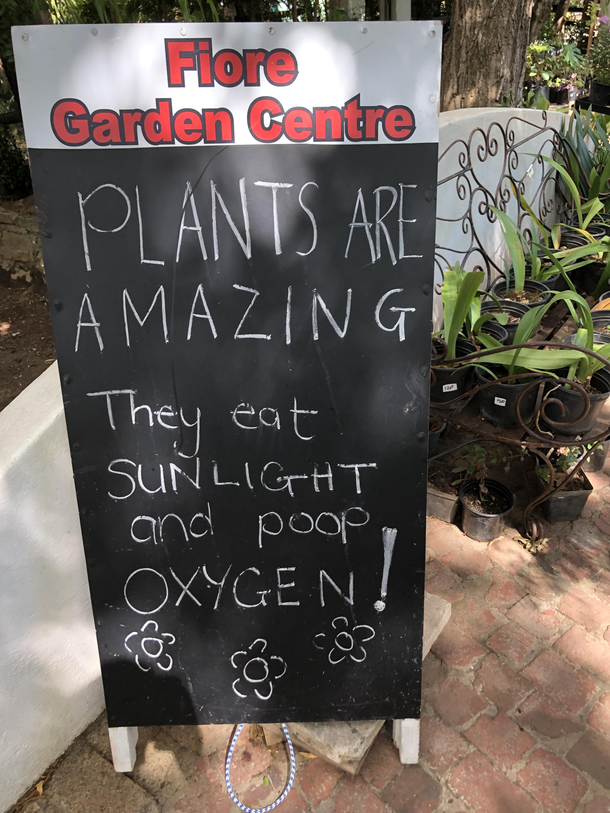 Fiore
Garden Centre
PLANTS ARE
AMAZING
They eat
SUNLIGHT
and poop
OXYGEN!